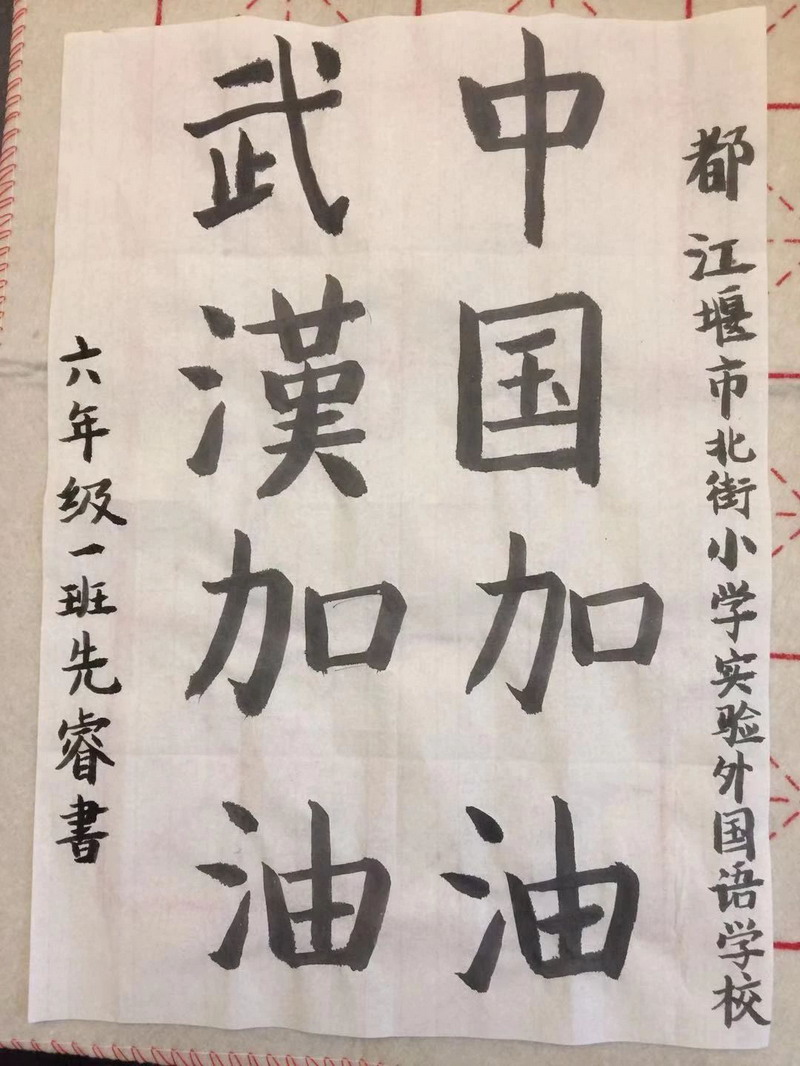 都江堰市北街小学实验外国语学校
中国加油
武漢加油
六年级一班先睿書